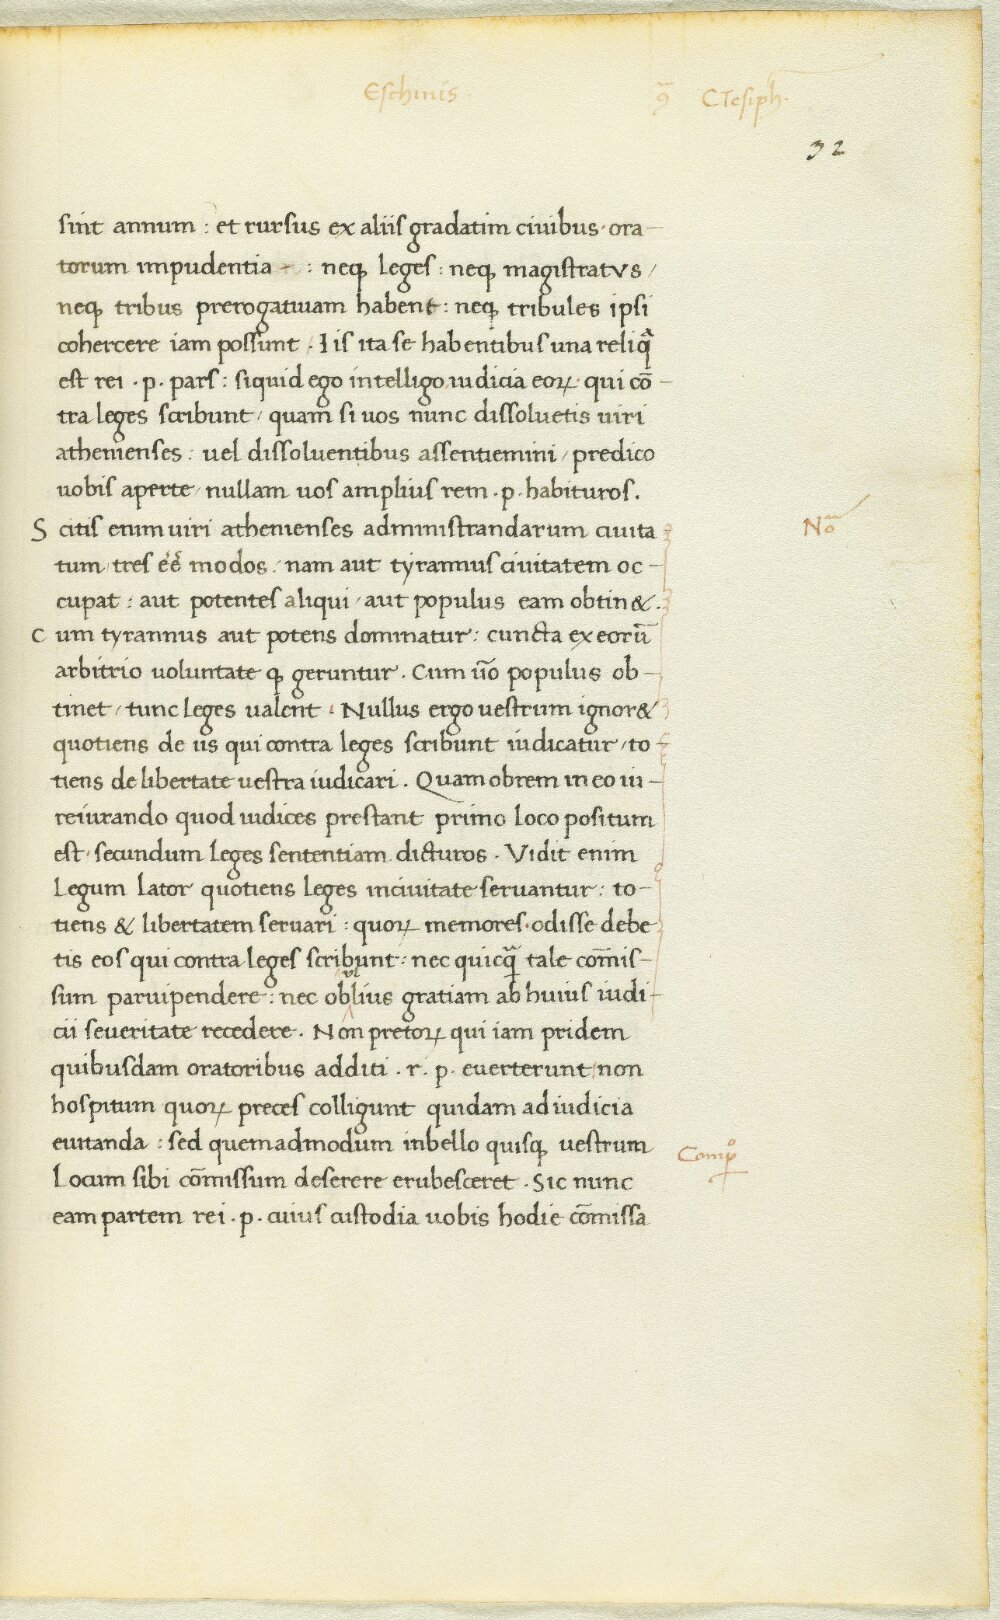 Eschinis. 9̄ CTesiph.
32
sint annum : et rursus ex aliis gradatim ciuibus · ora-
torum impudentia - : neqꝫ leges : neqꝫ magistratus /
neqꝫ tribus prerogatiuam habent : neqꝫ tribules ipsi
cohercere iam possunt . Iis ita se habentibus una reliq̃
est rei . p . pars : siquid ego intelligo iudicia eoꝝ qui cō-
tra leges scribunt / quam si uos nunc dissoluetis uiri
athenienses : uel dissoluentibus assentiemini / predico
uobis aperte / nullam uos amplius rem . p . habituros .
Scitis enim uiri athenienses administrandarum ciuita
tum / tres eē modos . nam aut tyrannus ciuitatem oc-
cupat : aut potentes aliqui / aut populus eam obtin& .
Cum tyrannus aut potens dominatur : cuncta ex eorū
arbitrio uoluntate qꝫ geruntur . Cum ūo populus ob-
tinet / tunc leges ualent . Nullus ergo uestrum ignor&
quotiens de iis qui contra leges scribunt iudicatur / to
tiens de libertate uestra iudicari . Quamobrem in eo iu-
reiurando quod iudices prestant primo loco positum
est · secundum leges sententiam dicturos . Vidit enim
Legum lator quotiens leges inciuitate seruantur : to-
tiens & libertatem seruari : quoꝝ memores · odisse debe
tis eos qui contra leges scribunt : nec quicq̃ tale cōmis-
sum paruipendere : nec obͮlius gratiam ab huius iudi-
cii seueritate recedere . Non pretoꝝ qui iam pridem
quibusdam oratoribus additi . r . p . euerterunt / non
hospitum quoꝝ preces colligunt quidam ad iudicia
euitanda : sed quemadmodum inbello quisqꝫ uestrum
Locum sibi cōmissum deserere erubesceret . Sic nunc
eam partem rei . p . cuius custodia uobis hodie cōmissa
Nō
Comꝑº